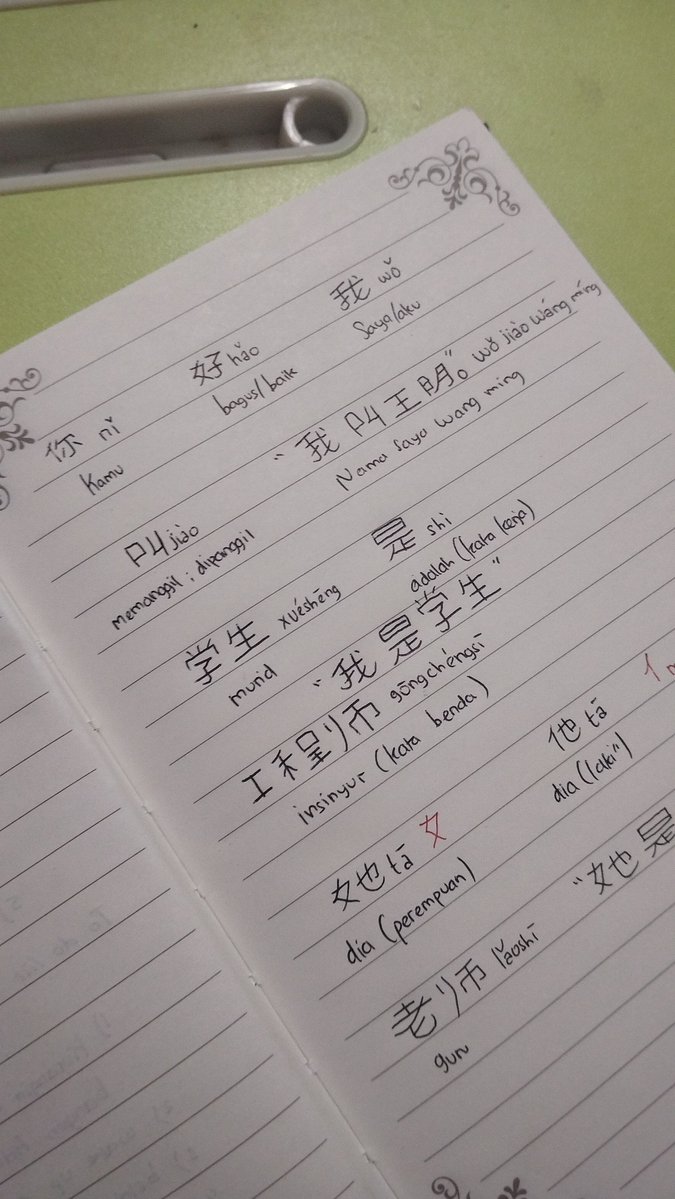 你 nǐ 好 hǎo 我 wǒ
Kamu bagus/baik Saya/aku
叫 jiào "我叫王明。" wǒ jiào wáng míng
memanggil ; dipanggil Nama saya wang ming
学生 xuéshēng 是 shi
murid adalah (kata kerja)
"我是学生"
工程师 gōngchéngsī
insinyur (kata benda)
她 tā 女 他 tā 亻
dia (perempuan) dia (laki")
老师 lǎoshī "她是
guru